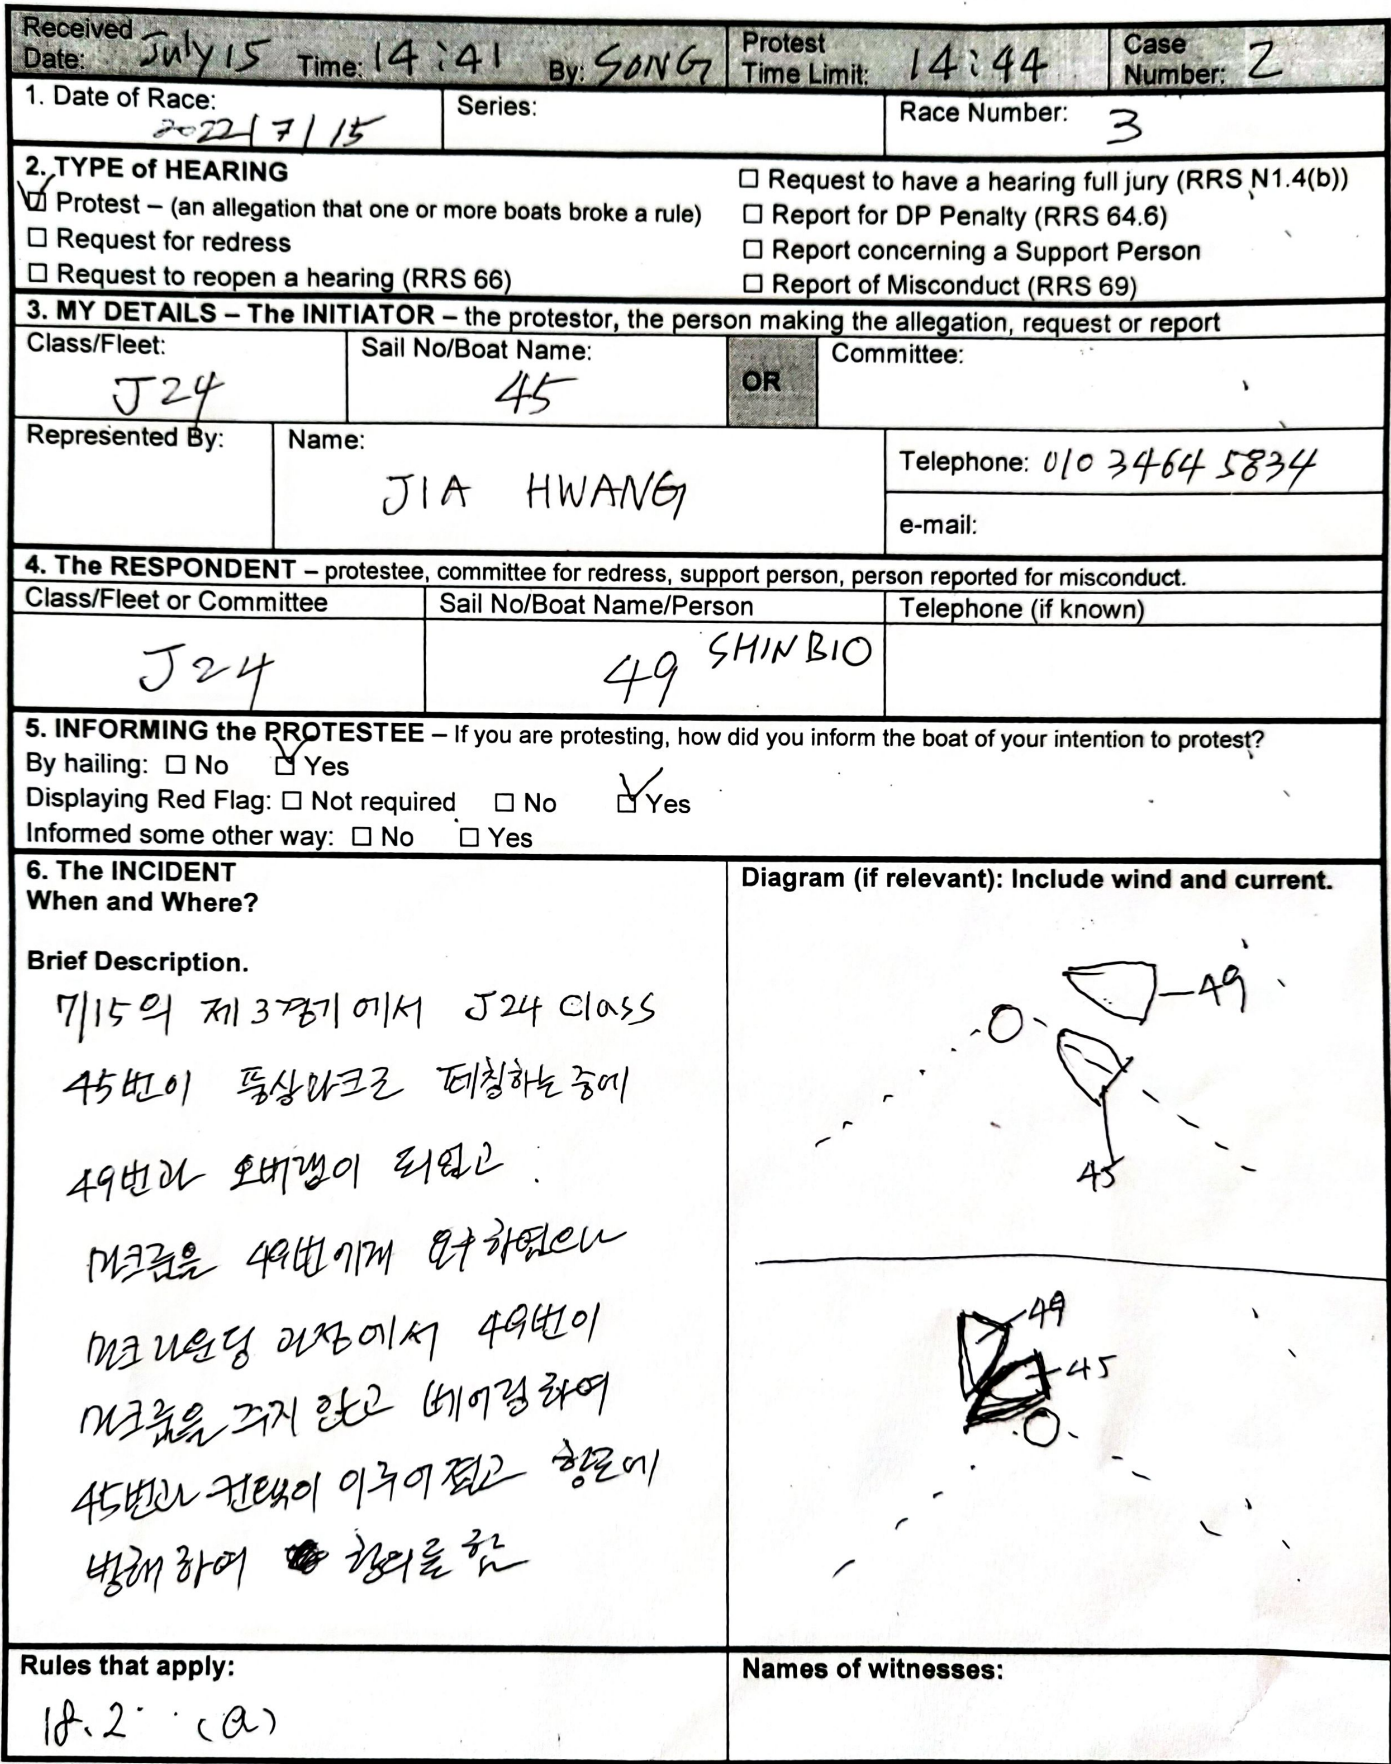 Received
Date: July 15 Time: 14:41 By: SONG
Protest
Time Limit: 14:44
Case
Number: 2
1. Date of Race:
2022/7/15
Series:
Race Number: 3
2. TYPE of HEARING
☑ Protest – (an allegation that one or more boats broke a rule)
☐ Request for redress
☐ Request to reopen a hearing (RRS 66)
☐ Request to have a hearing full jury (RRS N1.4(b))
☐ Report for DP Penalty (RRS 64.6)
☐ Report concerning a Support Person
☐ Report of Misconduct (RRS 69)
3. MY DETAILS – The INITIATOR – the protestor, the person making the allegation, request or report
Class/Fleet:
J24
Sail No/Boat Name:
45
OR
Committee:
Represented By:
Name:
JIA HWANG
Telephone: 010 3464 5834
e-mail:
4. The RESPONDENT – protestee, committee for redress, support person, person reported for misconduct.
Class/Fleet or Committee
J24
Sail No/Boat Name/Person
49 SHINBIO
Telephone (if known)
5. INFORMING the PROTESTEE – If you are protesting, how did you inform the boat of your intention to protest?
By hailing: ☐ No ☑ Yes
Displaying Red Flag: ☐ Not required ☐ No ☑ Yes
Informed some other way: ☐ No ☐ Yes
6. The INCIDENT
When and Where?
Brief Description.
7/15의 제3경기에서 J24 Class
45번이 풍상마크로 떼칭하는 중에
49번과 오버랩이 되었고
마크룸을 49번에게 요구하였으나
마크라운딩 과정에서 49번이
마크룸을 주지 않고 베어링하여
45번과 컨택이 이루어졌고 항로에
방해하여 항의를 함
Diagram (if relevant): Include wind and current.
49
45
49
45
Rules that apply:
18.2 (a)
Names of witnesses: